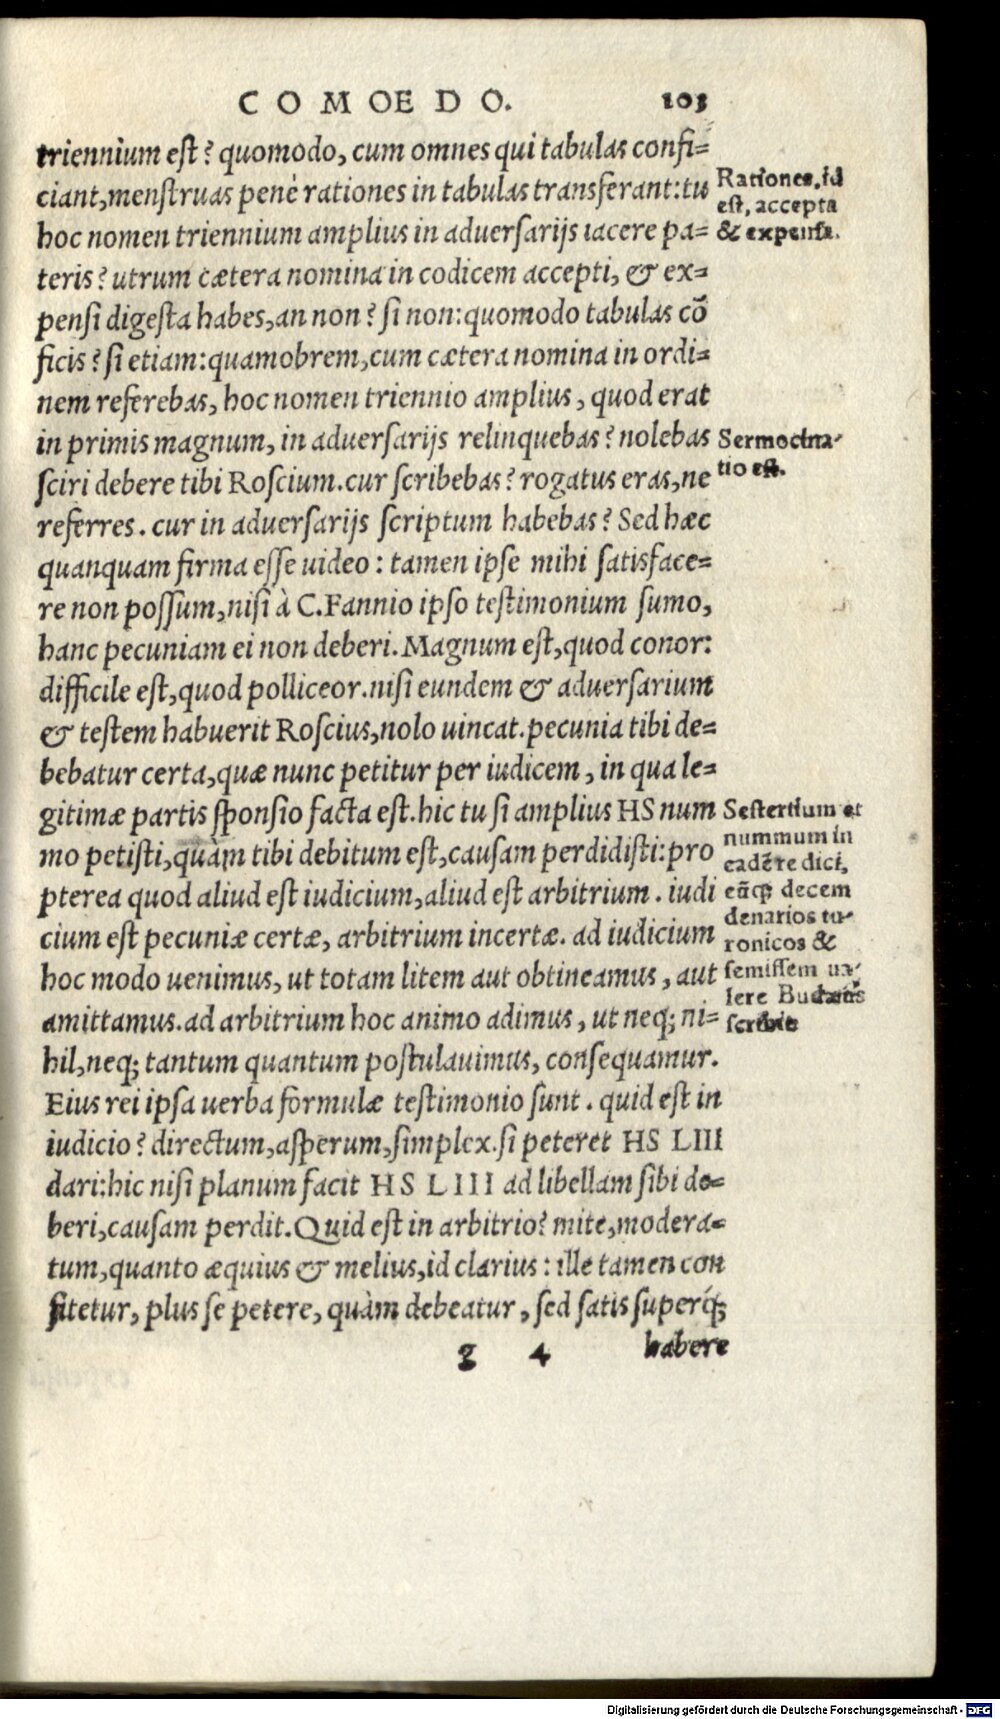 COMOEDO. 103
triennium est? quomodo, cum omnes qui tabulas confi=
ciant, menstruas penè rationes in tabulas transferant: tu
hoc nomen triennium amplius in aduersarijs iacere pa=
teris? utrum cætera nomina in codicem accepti, & ex=
pensi digesta habes, an non? si non: quomodo tabulas cõ
ficis? si etiam: quamobrem, cum cætera nomina in ordi=
nem referebas, hoc nomen triennio amplius, quod erat
in primis magnum, in aduersarijs relinquebas? nolebas
sciri debere tibi Roscium. cur scribebas? rogatus eras, ne
referres. cur in aduersarijs scriptum habebas? Sed hæc
quanquam firma esse uideo: tamen ipse mihi satisface=
re non possum, nisi à C. Fannio ipso testimonium sumo,
hanc pecuniam ei non deberi. Magnum est, quod conor:
difficile est, quod polliceor. nisi eundem & aduersarium
& testem habuerit Roscius, nolo uincat. pecunia tibi de=
bebatur certa, quæ nunc petitur per iudicem, in qua le=
gitimæ partis sponsio facta est. hic tu si amplius HS num
mo petisti, quàm tibi debitum est, causam perdidisti: pro
pterea quod aliud est iudicium, aliud est arbitrium. iudi
cium est pecuniæ certæ, arbitrium incertæ. ad iudicium
hoc modo uenimus, ut totam litem aut obtineamus, aut
amittamus. ad arbitrium hoc animo adimus, ut neq; ni=
hil, neq; tantum quantum postulauimus, consequamur.
Eius rei ipsa uerba formulæ testimonio sunt. quid est in
iudicio? directum, asperum, simplex. si peteret HS LIII
dari: hic nisi planum facit HS LIII ad libellam sibi de=
beri, causam perdit. Quid est in arbitrio? mite, modera=
tum, quanto æquius & melius, id clarius: ille tamen con
fitetur, plus se petere, quàm debeatur, sed satis superq́;
g 4 habere
Rationes, id
est, accepta
& expensa.
Sermocina-
tio est.
Sestertium et
nummum in
eadẽ re dici,
eãq; decem
denarios tu-
ronicos &
semissem ua-
lere Budæus
scribit
Digitalisierung gefördert durch die Deutsche Forschungsgemeinschaft - DFG